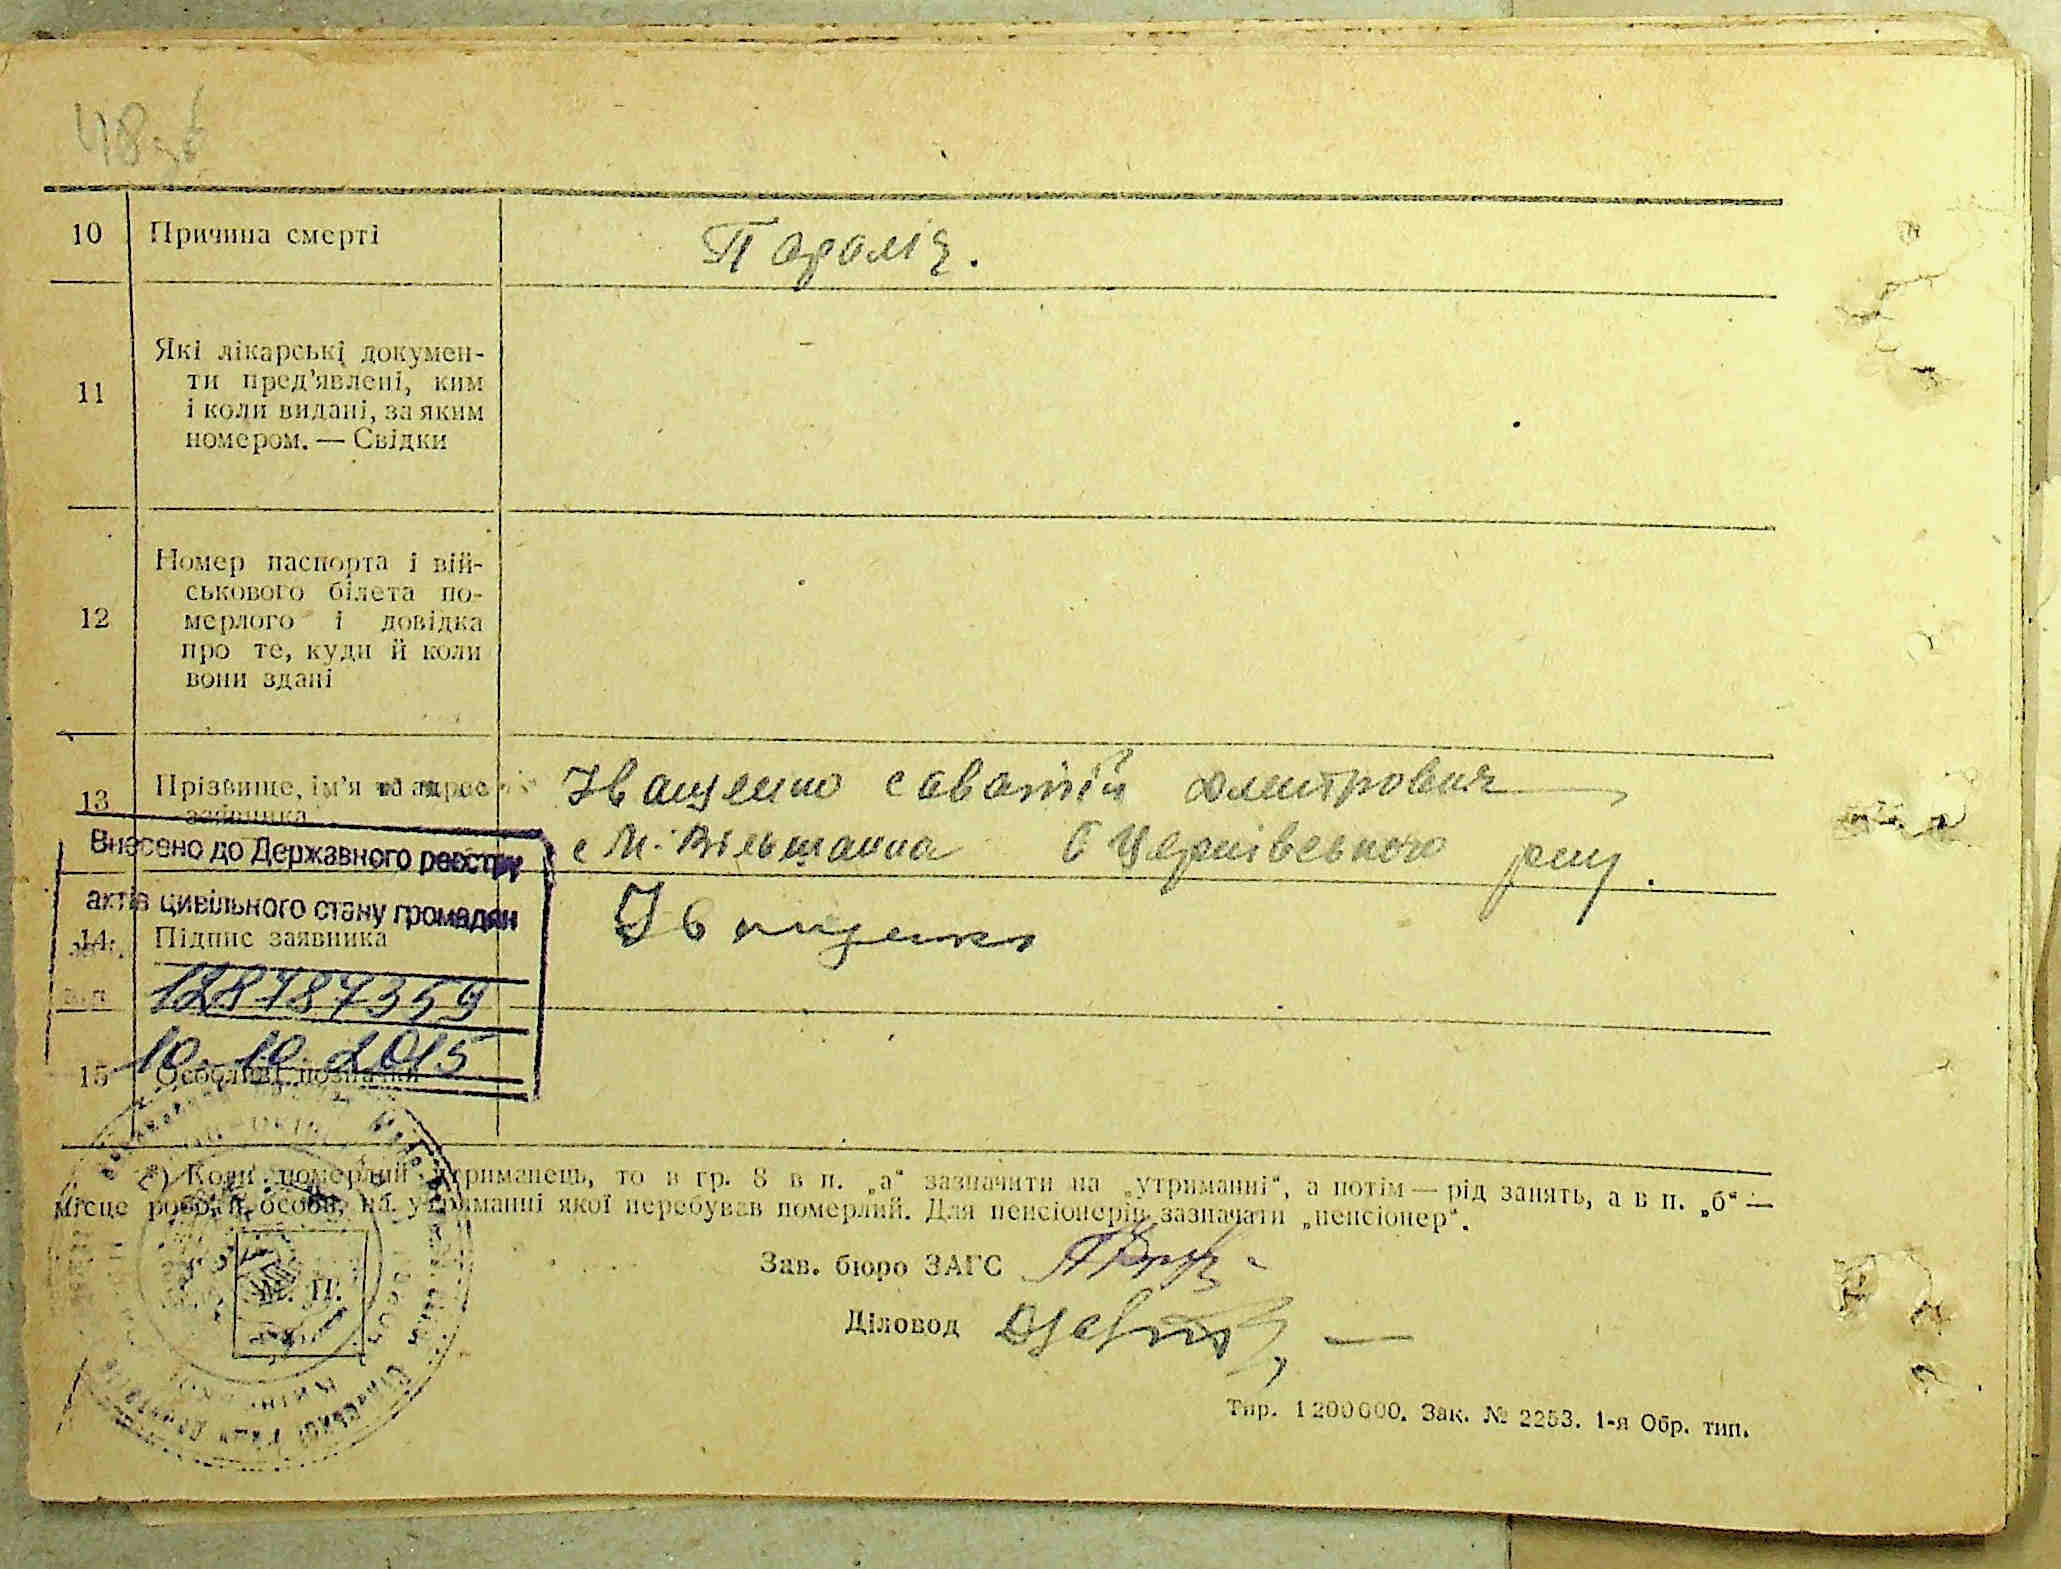 10 Причина смерті
Параліч.
11 Які лікарські докумен-
ти пред'явлені, ким
і коли видані, за яким
номером. — Свідки
12 Номер паспорта і вій-
ськового білета по-
мерлого і довідка
про те, куди й коли
вони здані
13 Прізвище, ім'я та адрес
заявника
Іващенко Саватій Дмитрович
с М. Вільшанка
Внесено до Державного реєстру
актів цивільного стану громадян
14 Підпис заявника
Іващенко
128787359
10.10.2015
15 Особливі позначки
*) Коли померлий утриманець, то в гр. 8 в п. „а“ зазначити на „утриманні“, а потім — рід занять, а в п. „б“ —
місце роботи особи, на утриманні якої перебував померлий. Для пенсіонерів зазначати „пенсіонер“.
М. П.
Зав. бюро ЗАГС
Діловод
Тир. 1 200 000. Зак. № 2253. 1-я Обр. тип.